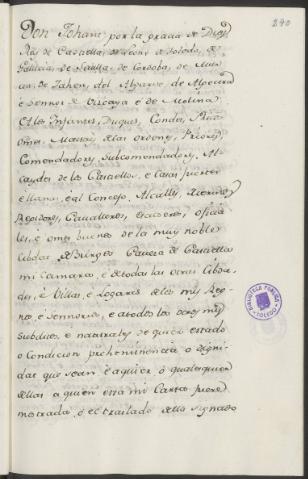 240
Don Johan por la gracia de Dios
Rey de Castiella, de Leon, de Toledo, de
Galicia, de Sevilla, de Cordoba, de Mur
cia, de Jahen, del Algarve, de Algecira
é Sennor de Vizcaya é de Molina
A los Infantes, Duques, Condes, Ricos
omes, Maestres de las Ordenes, Priores
Comendadores, Subcomendadores, Al
caydes de los Castiellos, é Casas fuertes
é llanas, é al Concejo, Alcalles,
Regidores, Caualleros, Escuderos, Oficia
les, é omes buenos de la muy noble
Cibdat de Burgos Caveza de Castiella
mi Camara, é de todas las otras Cibda
des, é Villas, é Logares de los mis Reg
nos, é Sennorios, é a todos los otros mis
Subditos, é naturales de qualquier estado
o Condicion preheminencia o digni
dat que sean é a qualquier, ó qualesquier
dellos a quien esta mi Carta fuere
mostrada, ó el traslado della signado
BIBLIOTECA PUBLICA
TOLEDO